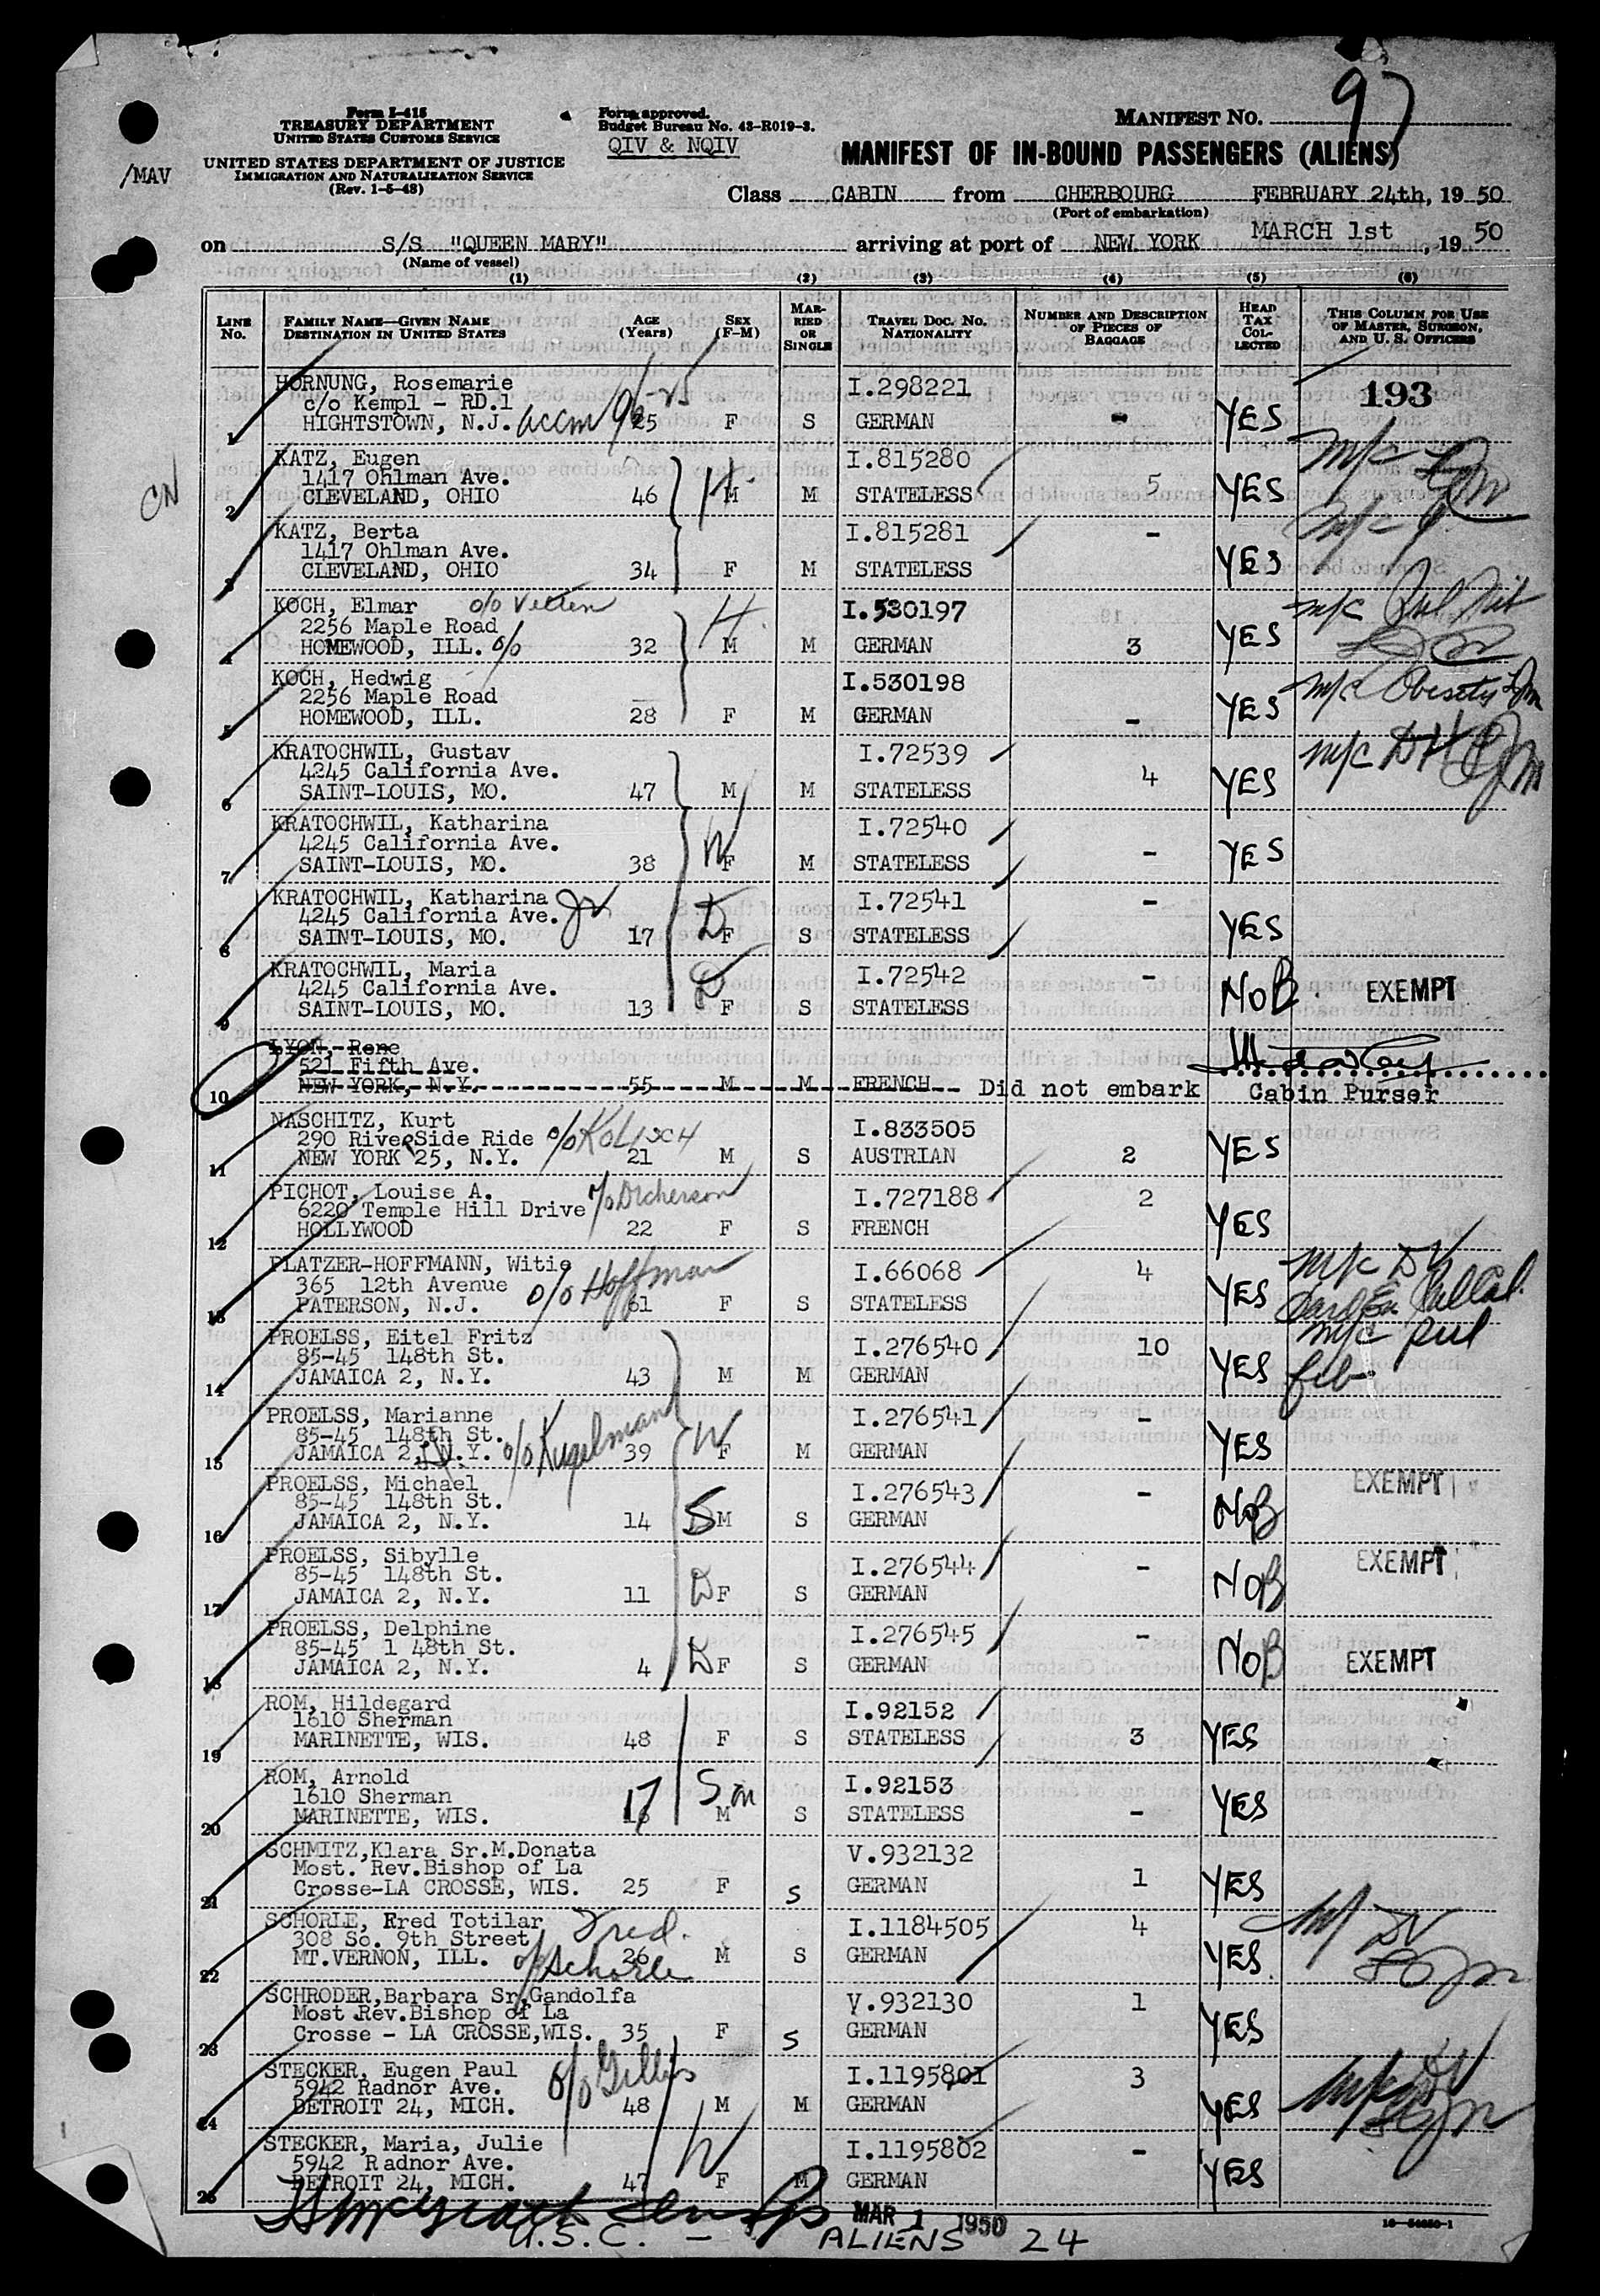 97
Form I-415
TREASURY DEPARTMENT
UNITED STATES CUSTOMS SERVICE
UNITED STATES DEPARTMENT OF JUSTICE
IMMIGRATION AND NATURALIZATION SERVICE
(Rev. 1-5-48)
/MAV
Form approved.
Budget Bureau No. 43-R019-3.
QIV & NQIV
MANIFEST NO.
MANIFEST OF IN-BOUND PASSENGERS (ALIENS)
Class CABIN from CHERBOURG FEBRUARY 24th, 19 50
(Port of embarkation)
on S/S "QUEEN MARY" arriving at port of NEW YORK MARCH 1st, 19 50
(Name of vessel)
(1) (2) (3) (4) (5) (6)
LINE No. FAMILY NAME—GIVEN NAME DESTINATION IN UNITED STATES AGE (Years) SEX (F-M) MARRIED OR SINGLE TRAVEL DOC. NO. NATIONALITY NUMBER AND DESCRIPTION OF PIECES OF BAGGAGE HEAD TAX COLLECTED THIS COLUMN FOR USE OF MASTER, SURGEON, AND U. S. OFFICERS
HORNUNG, Rosemarie I.298221 193
c/o Kempl - RD.1
1 HIGHTSTOWN, N.J. 25 F S GERMAN - YES
KATZ, Eugen I.815280 M/c
1417 Ohlman Ave.
CN
2 CLEVELAND, OHIO 46 H M M STATELESS 5 YES
KATZ, Berta I.815281 - M/c
1417 Ohlman Ave.
3 CLEVELAND, OHIO 34 F M STATELESS YES
KOCH, Elmar c/o Vetten I.530197 M/c
2256 Maple Road
4 HOMEWOOD, ILL. c/o 32 H M M GERMAN 3 YES
KOCH, Hedwig I.530198 M/c Obesity
2256 Maple Road
5 HOMEWOOD, ILL. 28 F M GERMAN - YES
KRATOCHWIL, Gustav I.72539 M/c
4245 California Ave.
6 SAINT-LOUIS, MO. 47 M M STATELESS 4 YES
KRATOCHWIL, Katharina I.72540
4245 California Ave.
7 SAINT-LOUIS, MO. 38 W F M STATELESS - YES
KRATOCHWIL, Katharina Jr I.72541 -
4245 California Ave.
8 SAINT-LOUIS, MO. 17 D F S STATELESS YES
KRATOCHWIL, Maria I.72542 -
4245 California Ave.
9 SAINT-LOUIS, MO. 13 D F S STATELESS NoB EXEMPT
LYON, Rene
521 Fifth Ave.
10 NEW YORK, N.Y. 55 M M FRENCH Did not embark Cabin Purser
NASCHITZ, Kurt I.833505
290 RiverSide Ride c/o KOLISCH
11 NEW YORK 25, N.Y. 21 M S AUSTRIAN 2 YES
PICHOT, Louise A. c/o Dicherson I.727188 2
6220 Temple Hill Drive
12 HOLLYWOOD 22 F S FRENCH YES
PLATZER-HOFFMANN, Witie I.66068 4 M/c DV
365 12th Avenue c/o Hoffman
13 PATERSON, N.J. 61 F S STATELESS YES
PROELSS, Eitel Fritz I.276540 10 M/c
85-45 148th St.
14 JAMAICA 2, N.Y. 43 M M GERMAN YES
PROELSS, Marianne I.276541 -
85-45 148th St.
15 JAMAICA 2, N.Y. c/o Kugelman 39 W F M GERMAN YES
PROELSS, Michael I.276543 - EXEMPT
85-45 148th St.
16 JAMAICA 2, N.Y. 14 S M S GERMAN NoB
PROELSS, Sibylle I.276544 - EXEMPT
85-45 148th St.
17 JAMAICA 2, N.Y. 11 D F S GERMAN NoB
PROELSS, Delphine I.276545 -
85-45 1 48th St.
18 JAMAICA 2, N.Y. 4 D F S GERMAN NoB EXEMPT
ROM, Hildegard I.92152
1610 Sherman
19 MARINETTE, WIS. 48 F S STATELESS 3 YES
ROM, Arnold I.92153
1610 Sherman
20 MARINETTE, WIS. 17 Son M S STATELESS - YES
SCHMITZ,Klara Sr.M.Donata V.932132
Most. Rev.Bishop of La
21 Crosse-LA CROSSE, WIS. 25 F S GERMAN 1 YES
SCHORLE, Rred Totilar Fred. I.1184505 4
308 So. 9th Street
22 MT.VERNON, ILL. c/o Schorle 26 M S GERMAN YES
SCHRODER,Barbara Sr.Gandolfa V.932130 1
Most Rev.Bishop of La
23 Crosse - LA CROSSE,WIS. 35 F S GERMAN YES
STECKER, Eugen Paul c/o Gillis I.1195801 3
5942 Radnor Ave.
24 DETROIT 24, MICH. 48 M M GERMAN YES
STECKER, Maria, Julie I.1195802 -
5942 Radnor Ave.
25 DETROIT 24, MICH. 47 W F M GERMAN YES
MAR 1 1950
16-54650-1
U.S.C. - ALIENS 24